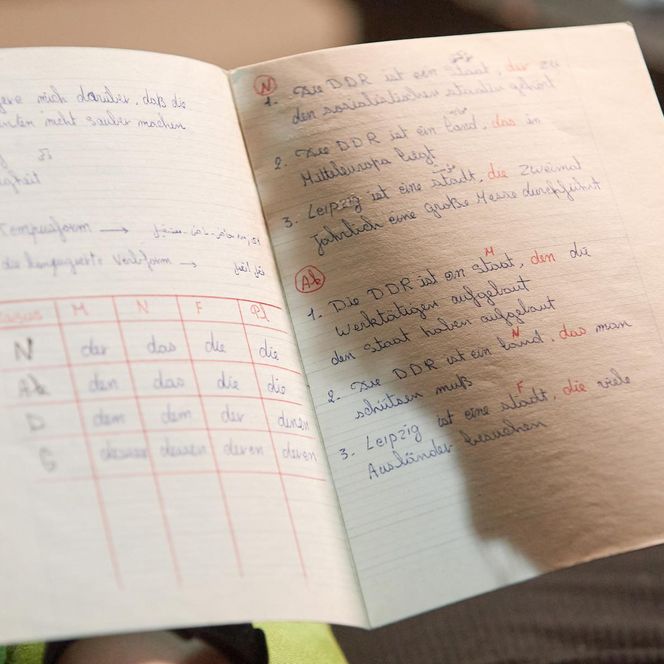 mich darüber, daß die
nicht sauber machen
Tempusform →
die konjugierte Verbform →
Kasus M N F Pl
N der das die die
Ak den das die die
D dem dem der denen
G dessen dessen deren deren
N
1. Die DDR ist ein Staat, der zu
den sozialistischen Staaten gehört
2. Die DDR ist ein Land, das in
Mitteleuropa liegt
3. Leipzig ist eine Stadt, die zweimal
Jährlich eine große Messe durchführt
Ak
M
1. Die DDR ist ein Staat, den die
Werktätigen aufgebaut
den Staat haben aufgebaut
N
2. Die DDR ist ein Land, das man
schützen muß
F
3. Leipzig ist eine Stadt, die viele
Ausländer besuchen